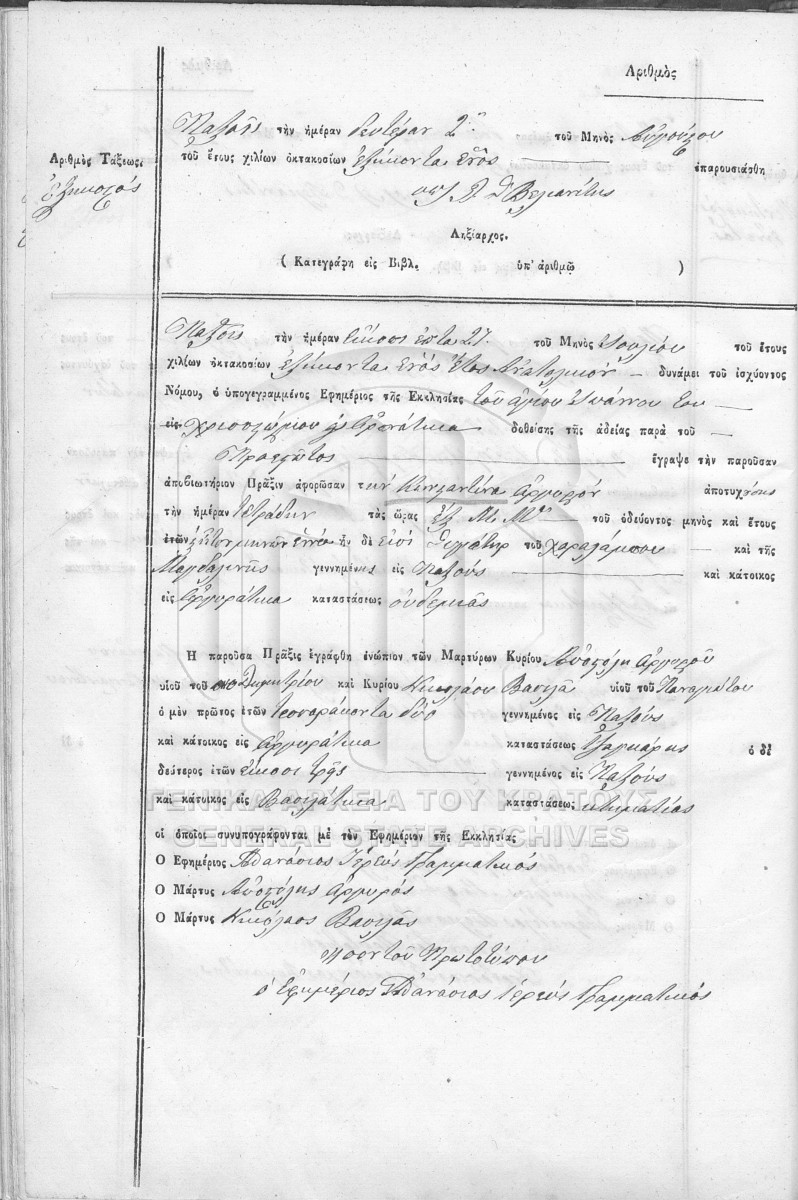 Ἀριθμὸς
Παξοῖς τὴν ἡμέραν δευτέραν 2αν τοῦ Μηνὸς Αὐγούστου
Ἀριθμὸς Τάξεως.
τοῦ ἔτους χιλίων ὀκτακοσίων ἑξήκοντα ἑνὸς ἐπαρουσιάσθη
ἑξηκοστὸς
Βελιανίτης
Ληξίαρχος.
( Κατεγράφη εἰς Βιβλ. ὑπ' ἀριθμῷ )
Παξοῖς τὴν ἡμέραν εἴκοσι ἑπτὰ 27. τοῦ Μηνὸς Ἰουλίου τοῦ ἔτους
χιλίων ὀκτακοσίων ἑξήκοντα ἑνὸς ἔτος Ἀνατολικὸν — δυνάμει τοῦ ἰσχύοντος
Νόμου, ὁ ὑπογεγραμμένος Ἐφημέριος τῆς Ἐκκλησίας τοῦ ἁγίου Ἰωάννου του —
εἰς δοθείσης τῆς ἀδείας παρὰ τοῦ —
Πρωτ — ἔγραψε τὴν παροῦσαν
ἀποβιωτήριον Πρᾶξιν ἀφορῶσαν τὴν Κωνσταντίνα Ἀργυροῦ ἀποτυχούσης
τὴν ἡμέραν τετράδην τὰς ὥρας ἓξ Μ. Μ. — τοῦ ὁδεύοντος μηνὸς καὶ ἔτους
ἐτῶν μηνῶν ἐννέα ἡ δὲ θυγάτηρ τοῦ Χαραλάμπου — καὶ τῆς
Μαγδαληνῆς γεννημένης εἰς Παξοὺς — καὶ κάτοικος
εἰς Ἀργυράτικα καταστάσεως οὐδεμιᾶς
Ἡ παροῦσα Πρᾶξις ἐγράφθη ἐνώπιον τῶν Μαρτύρων Κυρίου Ἀποστόλη Ἀργυροῦ
υἱοῦ τοῦ Δημητρίου καὶ Κυρίου Νικολάου Βασιλᾶ υἱοῦ τοῦ Παναγιώτου
ὁ μὲν πρῶτος ἐτῶν τεσσαράκοντα δύο γεννημένος εἰς Παξοὺς
καὶ κάτοικος εἰς Ἀργυράτικα καταστάσεως ὁ δὲ
δεύτερος ἐτῶν εἴκοσι τρῆς — γεννημένος εἰς Παξοὺς
καὶ κάτοικος εἰς Βασιλάτικα καταστάσεως κτηματίας
ΓΕΝΙΚΑ ΑΡΧΕΙΑ ΤΟΥ ΚΡΑΤΟΥΣ
οἱ ὁποῖοι συνυπογράφονται μὲ τὸν Ἐφημέριον τῆς Ἐκκλησίας
GENERAL STATE ARCHIVES
Ο Ἐφημέριος Ἀθανάσιος Ἱερεὺς Γραμματικὸς
Ο Μάρτυς Ἀποστόλης Ἀργυρὸς
Ο Μάρτυς Νικόλαος Βασιλᾶς
Ἴσον τοῦ Πρωτοτύπου
ὁ Ἐφημέριος Ἀθανάσιος Ἱερεὺς Γραμματικὸς